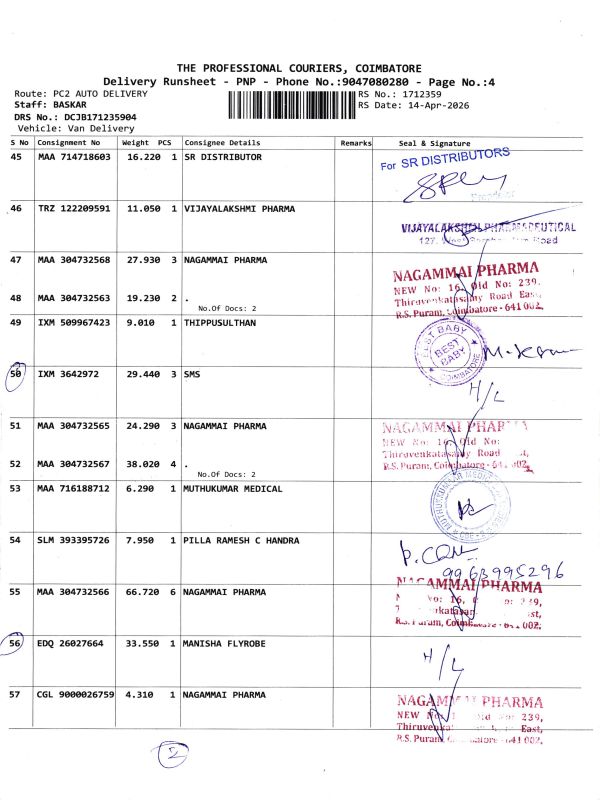 THE PROFESSIONAL COURIERS, COIMBATORE
Delivery Runsheet - PNP - Phone No.:9047080280 - Page No.:4
Route: PC2 AUTO DELIVERY RS No.: 1712359
Staff: BASKAR RS Date: 14-Apr-2026
DRS No.: DCJB171235904
Vehicle: Van Delivery
S No Consignment No Weight PCS Consignee Details Remarks Seal & Signature
45 MAA 714718603 16.220 1 SR DISTRIBUTOR
For SR DISTRIBUTORS
46 TRZ 122209591 11.050 1 VIJAYALAKSHMI PHARMA
VIJAYALAKSHMI PHARMACEUTICAL
127, Road
47 MAA 304732568 27.930 3 NAGAMMAI PHARMA
NAGAMMAI PHARMA
NEW No: 16, Old No: 239,
48 MAA 304732563 19.230 2 .
Thiruvenkatasamy Road East,
No.Of Docs: 2
R.S. Puram, Coimbatore - 641 002.
49 IXM 509967423 9.010 1 THIPPUSULTHAN
BEST BABY
BEST BABY
COIMBATORE
50 IXM 3642972 29.440 3 SMS
H/L
51 MAA 304732565 24.290 3 NAGAMMAI PHARMA
NAGAMMAI PHARMA
NEW No: 16, Old No:
Thiruvenkatasamy Road
52 MAA 304732567 38.020 4 .
R.S. Puram, Coimbatore - 641 002.
No.Of Docs: 2
53 MAA 716188712 6.290 1 MUTHUKUMAR MEDICAL
54 SLM 393395726 7.950 1 PILLA RAMESH C HANDRA
9963995296
55 MAA 304732566 66.720 6 NAGAMMAI PHARMA
NAGAMMAI PHARMA
No: 16, 239,
R.S. Puram, Coimbatore - 641 002.
56 EDQ 26027664 33.550 1 MANISHA FLYROBE
H/L
57 CGL 9000026759 4.310 1 NAGAMMAI PHARMA
NAGAMMAI PHARMA
NEW No: 16, Old No: 239,
East,
R.S. Puram, Coimbatore - 641 002.
2